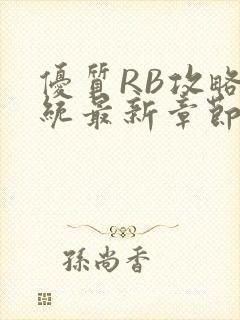 優質RB攻略
統最新章節
孫尚香